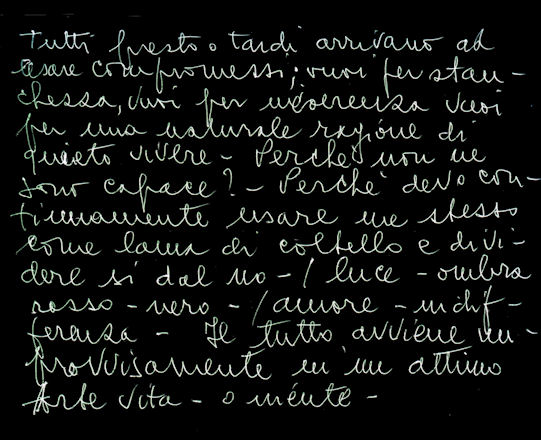 Tutti presto o tardi arrivano ad
usare compromessi; vuoi per stan-
chezza, vuoi per incoerenza vuoi
per una naturale ragione di
quieto vivere - Perchè non ne
sono capace? - Perchè devo con-
tinuamente usare me stesso
come lama di coltello e divi-
dere sì dal no - / luce - ombra
rosso - nero - / amore - indif-
ferenza - Il tutto avviene im-
provvisamente in un attimo
Arte vita - o niente -